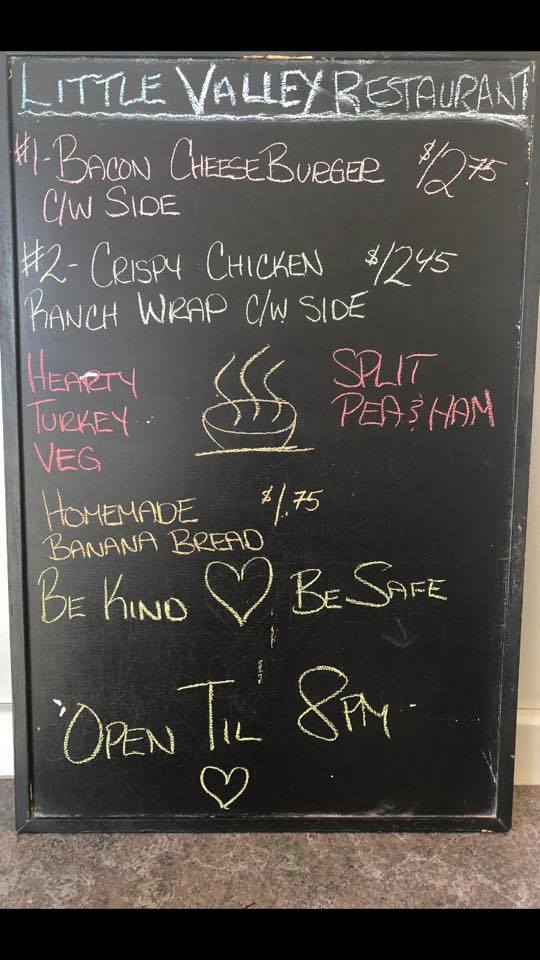 LITTLE VALLEY RESTAURANT
#1-BACON CHEESEBURGER $12.75
C/W SIDE
#2- CRISPY CHICKEN $12.45
RANCH WRAP C/W SIDE
HEARTY
TURKEY
VEG
SPLIT
PEA & HAM
HOMEMADE $1.75
BANANA BREAD
BE KIND ♡ BE SAFE
OPEN TIL 8PM